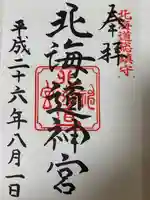 奉拝
北海道総鎮守
北海道神宮
平成二十六年八月一日